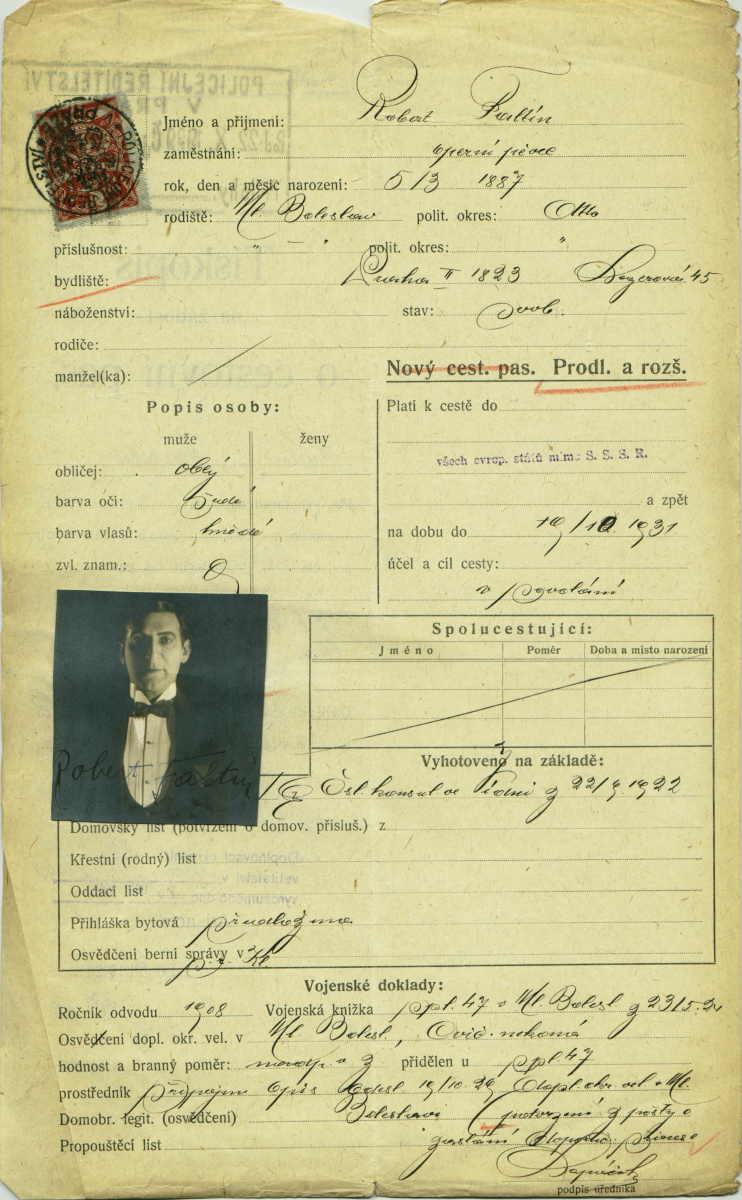 POLICEJNÍ ŘEDITELSTVÍ
V PRAZE
Jméno a přijmení: Robert Faltin
zaměstnání: operní pěvec
rok, den a měsíc narození: 5/3 1887
rodiště: Ml. Boleslav polit. okres: Otto
příslušnost: " — " polit. okres: "
bydliště: Praha II 1823 45
náboženství: stav: svob.
rodiče:
manžel(ka):
Nový cest. pas. Prodl. a rozš.
Popis osoby:
muže ženy
obličej:
barva oči: šedé
barva vlasů: hnědé
zvl. znam.:
Platí k cestě do
všech evrop. států mimo S. S. S. R.
a zpět
na dobu do 19/10 1931
účel a cíl cesty:
v povolání
Spolucestující:
Jméno Poměr Doba a místo narození
Robert Faltin
Vyhotoveno na základě:
Čsl. konsul ve Vídni z 22/9 1922
Domovský list (potvrzení o domov. přísluš.) z
Křestní (rodný) list
Oddací list
Přihláška bytová předložena
Osvědčení berní správy v
Vojenské doklady:
Ročník odvodu 1908 Vojenská knížka ppl. 47 v Ml. Bolesl z 23/5.
Osvědčení dopl. okr. vel. v Ml. Bolesl.,
hodnost a branný poměr: přidělen u ppl 47
prostředník 19/10 Dopl. okr. vel. v Ml.
Domobr. legit. (osvědčení) Boleslavi potvrzení z pošty o
Propouštěcí list zaslání
podpis úředníka